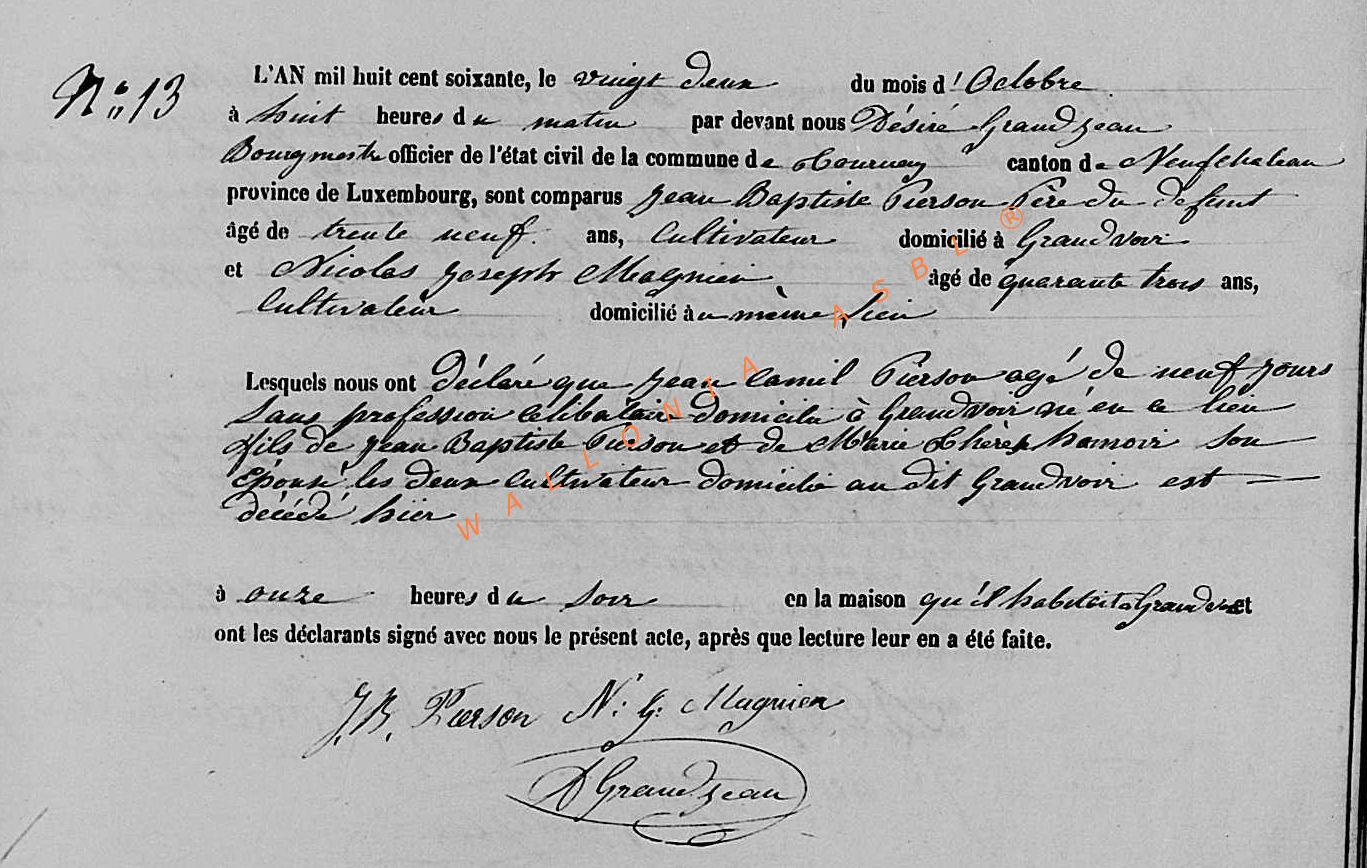 N° 13
L'AN mil huit cent soixante, le vingt deux du mois d'Octobre
à huit heures du matin par devant nous Désiré Grandjean
Bourgmestre officier de l'état civil de la commune de Tournay canton de Neufchateau
province de Luxembourg, sont comparus Jean Baptiste Pierson Père du défunt
âgé de trente neuf ans, Cultivateur domicilié à Grandvoir
et Nicolas Joseph Magnien, âgé de quarante trois ans,
Cultivateur domicilié au même lieu
Lesquels nous ont déclaré que Jean Camil Pierson agé de neuf jours
sans profession celibataire domicilié à Grandvoir né en ce lieu
fils de Jean Baptiste Pierson et de Marie Thérèse hamoir son
épouse les deux Cultivateur domicilié au dit Grandvoir est
décédé hier
à onze heures du soir en la maison qu'il habitait à Grandvoir et
ont les déclarants signé avec nous le présent acte, après que lecture leur en a été faite.
J.B. Pierson N: J: Magnien
D Grandjean
WALLONIA ASBL ®